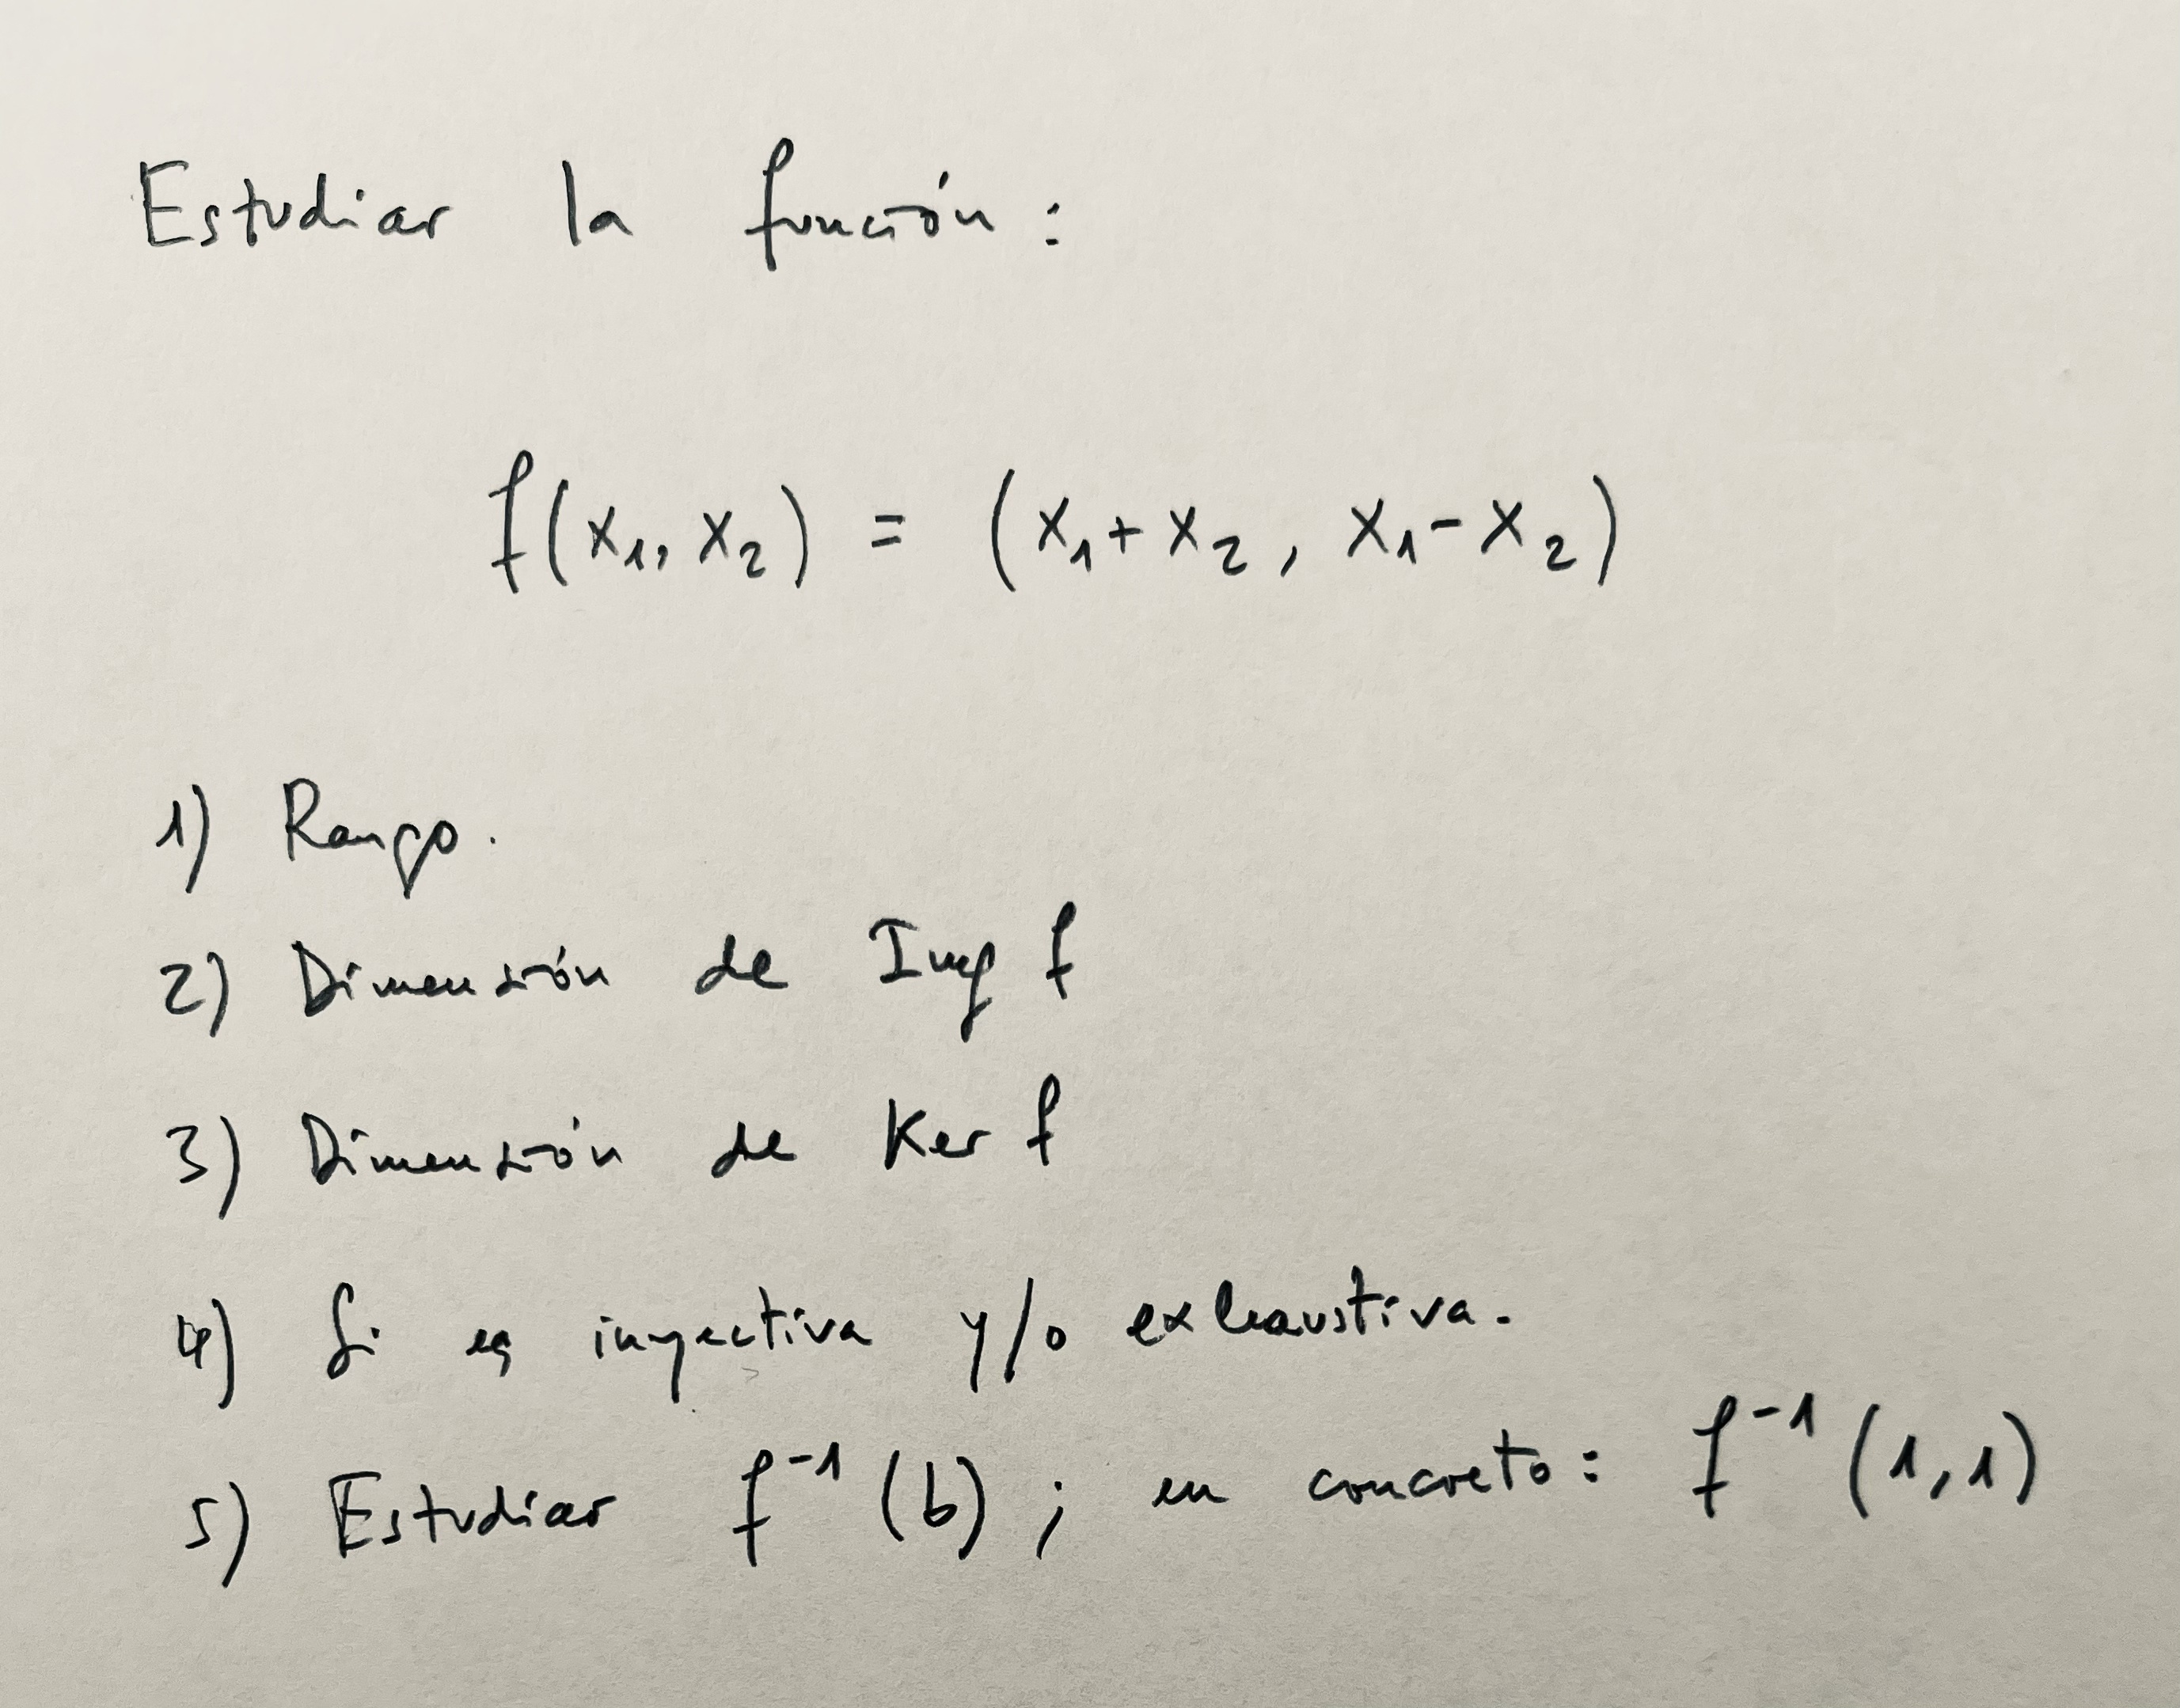 Estudiar la función:
f(x₁, x₂) = (x₁+x₂, x₁-x₂)
1) Rango.
2) Dimensión de Img f
3) Dimensión de Ker f
4) Si es inyectiva y/o exhaustiva.
5) Estudiar f⁻¹(b); en concreto: f⁻¹(1,1)